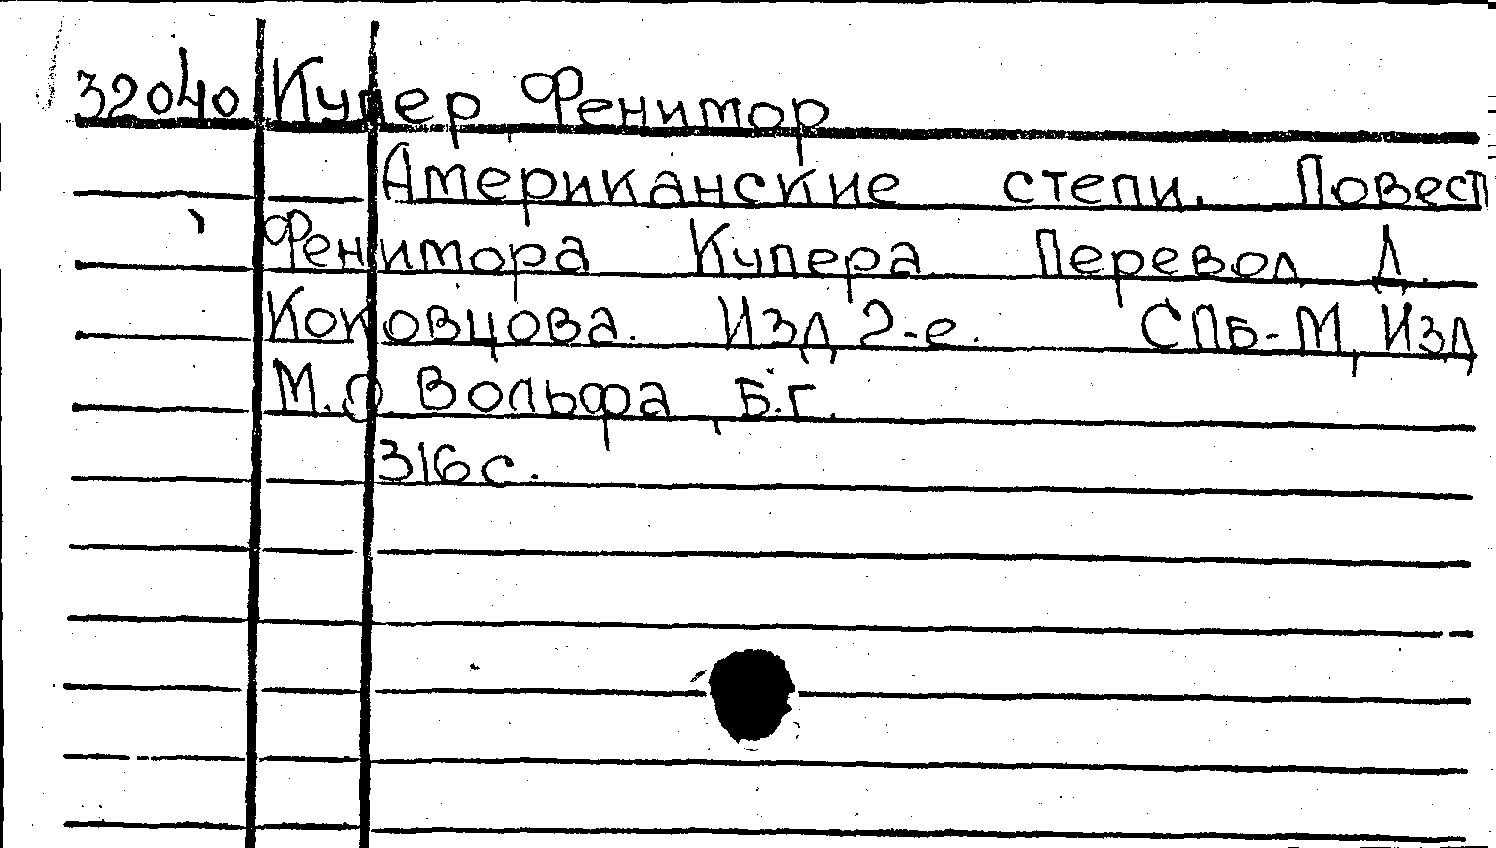 32040 Купер Фенимор
Американские степи. Повест
Фенимора Купера Перевод Д.
Коковцова. Изд 2-е. СПБ-М, Изд
М.О Вольфа, Б.г.
316с.